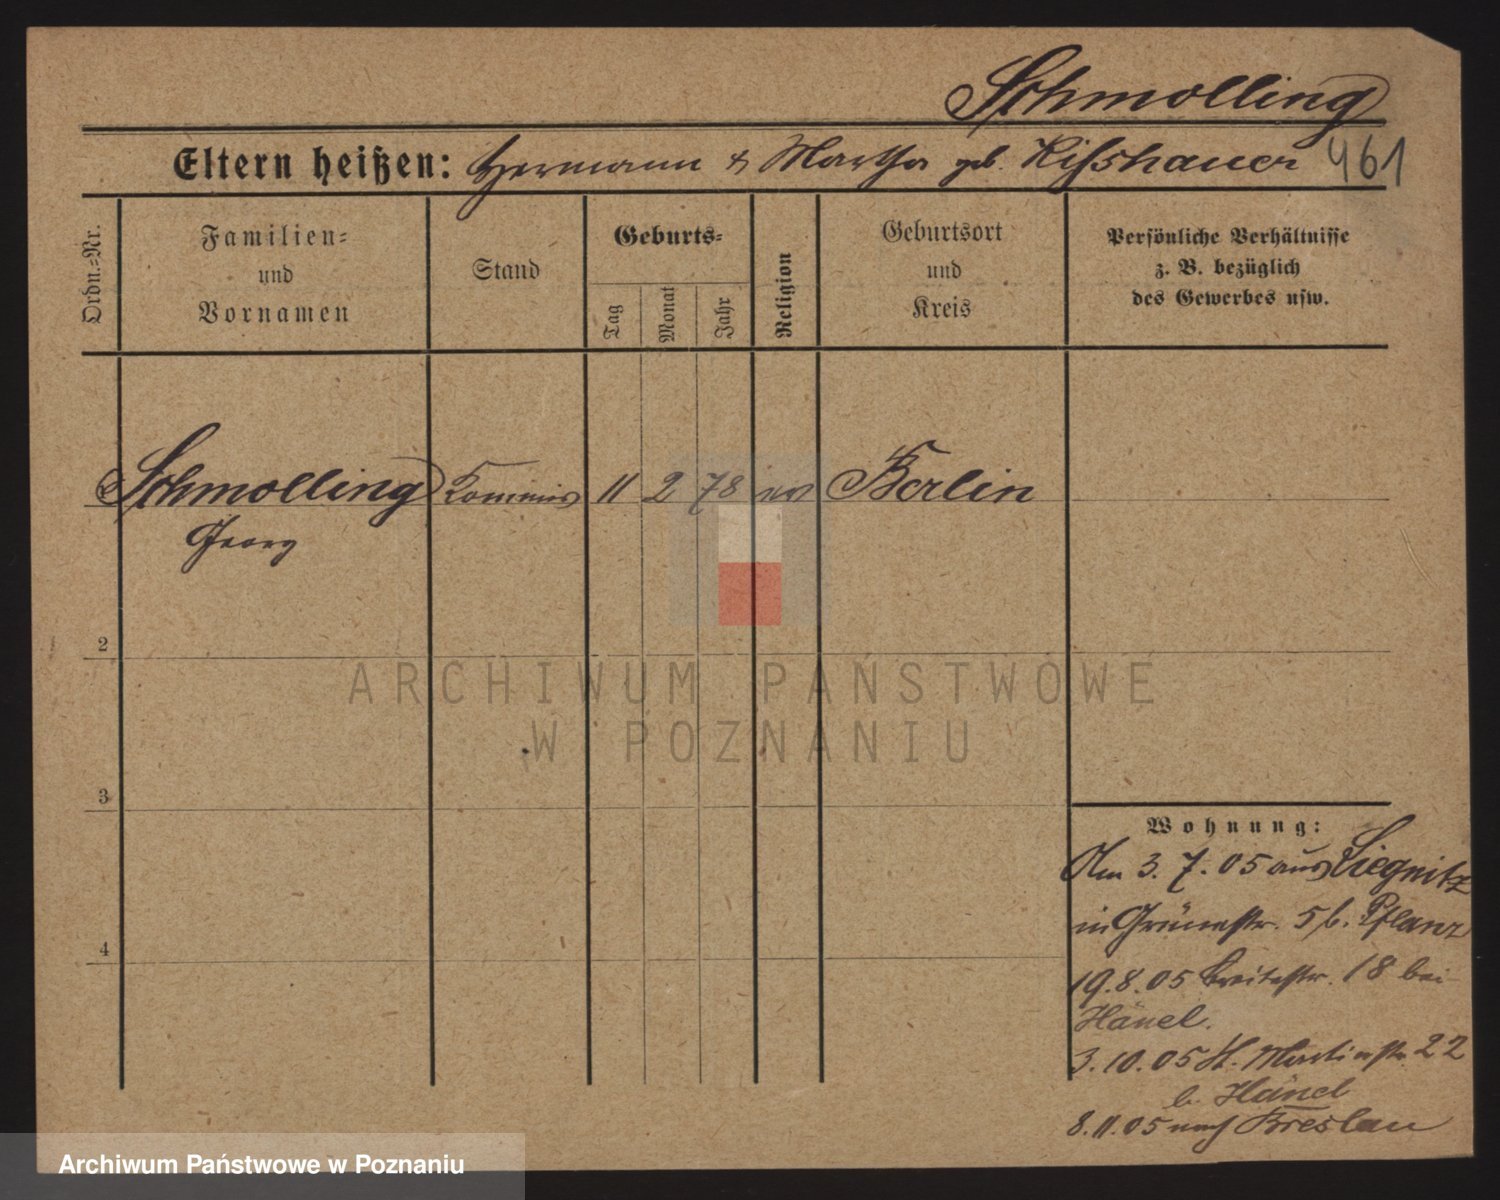 Schmolling
Eltern heißen: Hermann & Martha geb. Kißhauer 461
Ordn.-Nr.
Familien-
und
Vornamen
Stand
Geburts-
Tag
Monat
Jahr
Religion
Geburtsort
und
Kreis
Persönliche Verhältnisse
z. B. bezüglich
des Gewerbes usw.
Schmolling Kommis 11 2 78 ev Berlin
Georg
2
3
4
Wohnung:
Am 3.7.05 aus Liegnitz
in Grünestr. 5 b. Pflanz
19.8.05 Breitestr. 18 bei
Hänel.
3.10.05 St. Martinstr. 22
b. Hänel
8.11.05 nach Breslau
ARCHIWUM PAŃSTWOWE
W POZNANIU
Archiwum Państwowe w Poznaniu